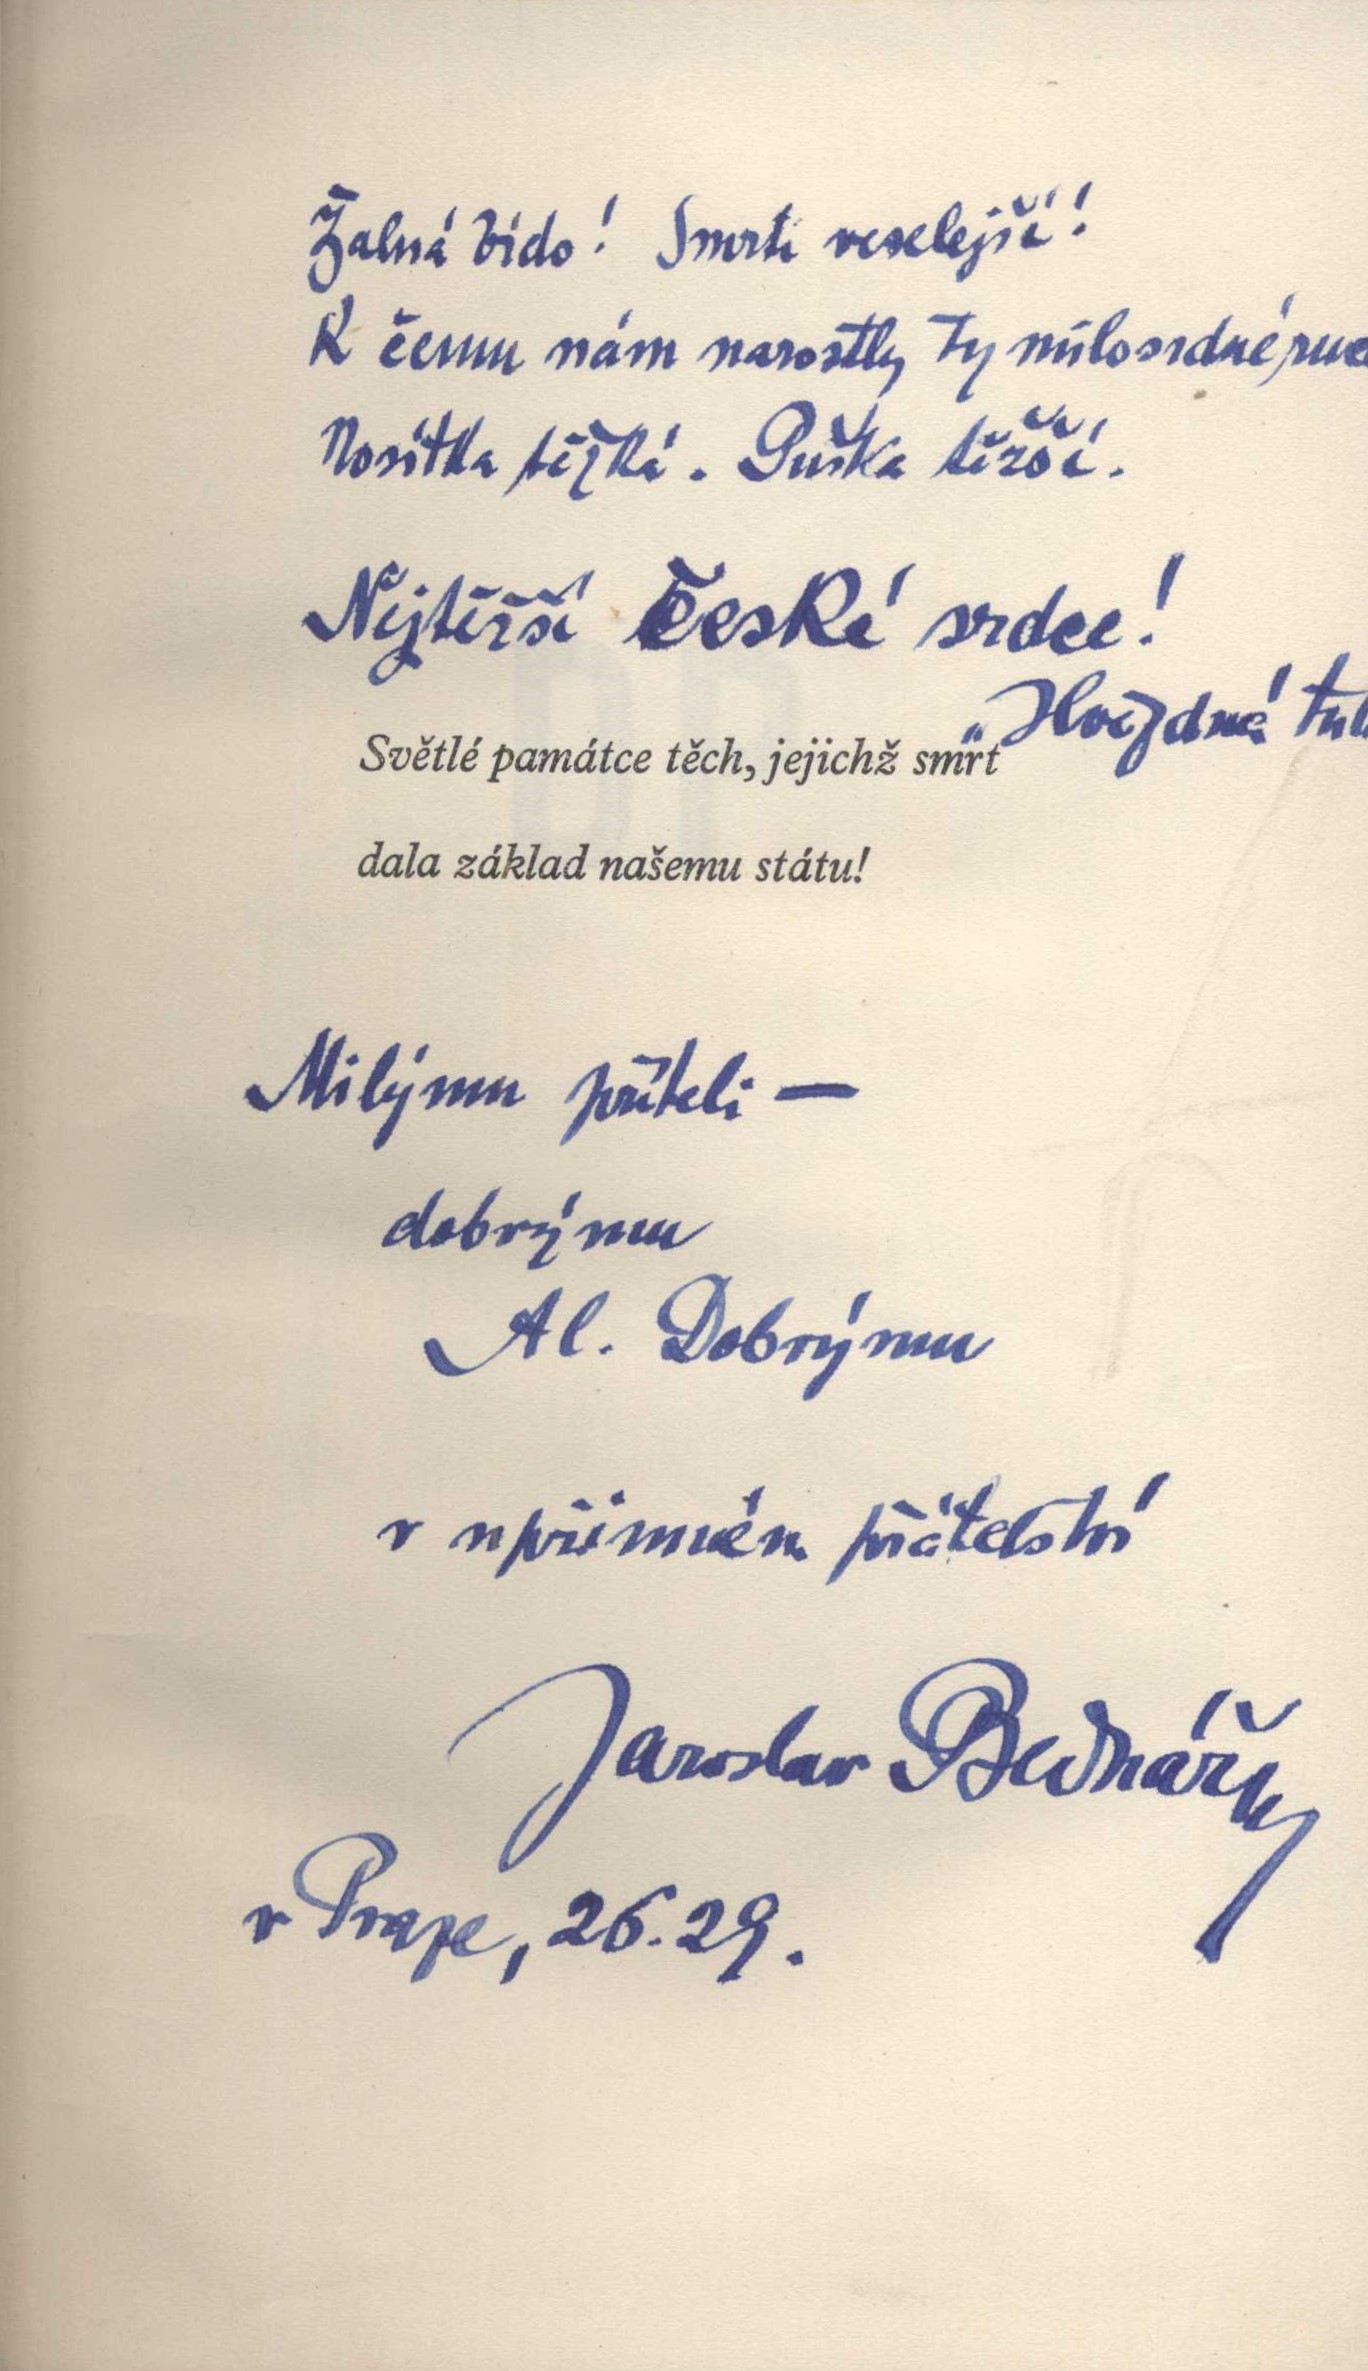 Žalná bído! Smrti veselejší!
K čemu nám narostly ty milosrdné
Nosítka těžká. Puška těžší.
Nejtěžší České srdce!
„Hvězdné
Světlé památce těch, jejichž smrt
dala základ našemu státu!
Milýmu příteli —
dobrýmu
Al. Dobrýmu
v upřímném přátelství
Jaroslav Bednářy
v Praze, 26.29.